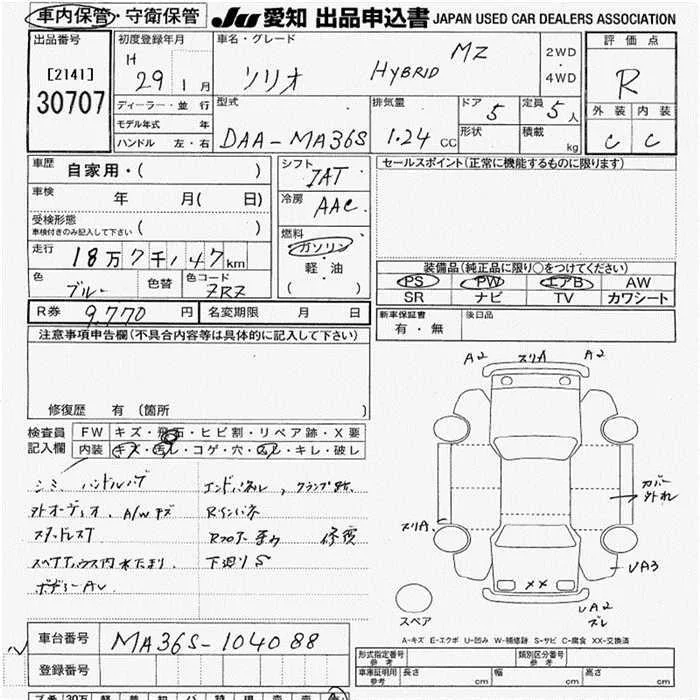 車内保管・守衛保管 JU 愛知 出品申込書 JAPAN USED CAR DEALERS ASSOCIATION
出品番号 初度登録年月 車名・グレード 2WD・4WD 評価点
[2141] H 29 1月 ソリオ HYBRID MZ R
30707 ディーラー・並行 型式 排気量 ドア 5 定員 5人 外装 内装
モデル年式 年 形状 積載 kg
ハンドル 左・右 DAA-MA36S 1.24 CC C C
車歴 自家用・( ) シフト IAT セールスポイント(正常に機能するものに限ります)
車検 年 月( 日) 冷房 AAC
受検形態 車検付きのみ記入して下さい ( ) 燃料
走行 18万7千147km ガソリン・軽・油 ( )
装備品(純正品に限り○をつけてください)
色 ブルー 色替 色コード ZRZ PS PW エアB AW
SR ナビ TV カワシート
R券 9,770円 名変期限 月 日 新車保証書 有・無 後日品
注意事項申告欄(不具合内容等は具体的に記入して下さい)
A2 スリA A2
修復歴 有(箇所 )
検査員記入欄 FW キズ・飛石・ヒビ割・リペア跡・X要
内装 キズ・汚れ・コゲ・穴・スレ・キレ・破レ
シミ、ハンドルハゲ
カバー外れ
外オーディオ、A/Wキズ Rシンバネ
スリA
スタッドレスT Rフロアー 修復
スペアハウス内水たまり、 下廻りS
UA3
ボデーAU
XX
UA2
ズレ
スペア
A-キズ E-エクボ U-凹み W-補修跡 S-サビ C-腐食 XX-交換済
車台番号 MA36S-104088
形式指定番号 参考 類別区分番号 参考
登録番号 車庫証明用 参考 長さ cm 幅 cm 高さ cm